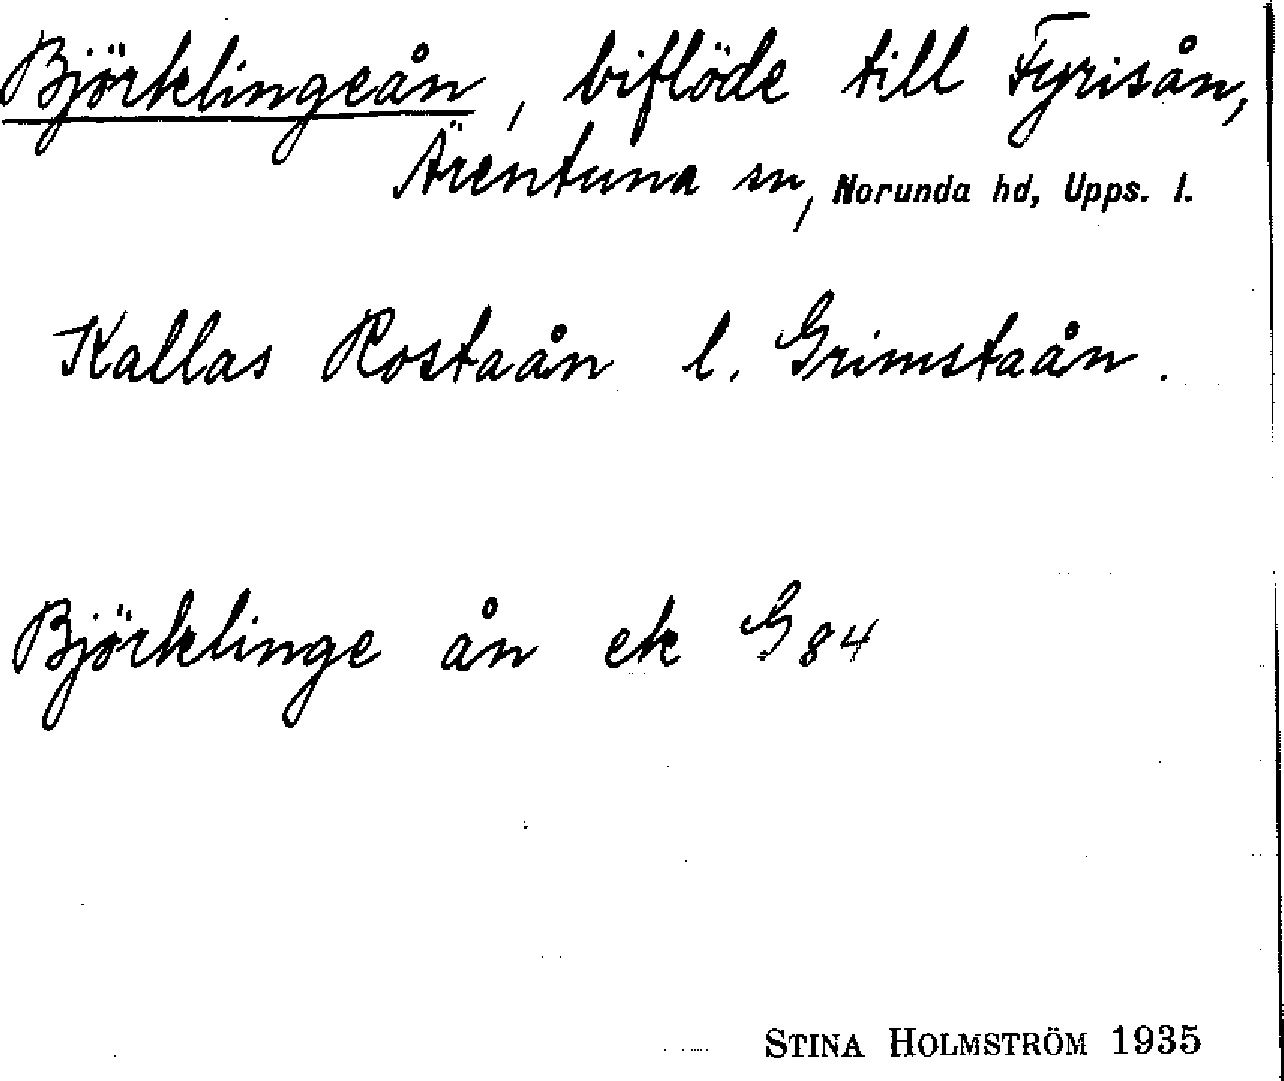 Björklingeån, biflöde till Fyrisån,
Ärentuna sn, Norunda hd, Upps. l.
Kallas Rostaån l. Grimstaån.
Björklinge ån ek G 84
STINA HOLMSTRÖM 1935